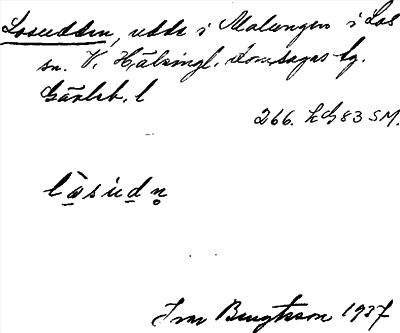 Losudden, udde i Malungen i Los
sn. V. Hälsingl. domsagas tg.
Gävleb. l
266. h G 83 SM.
lòsudn̥
Ivar Bengtsson 1937